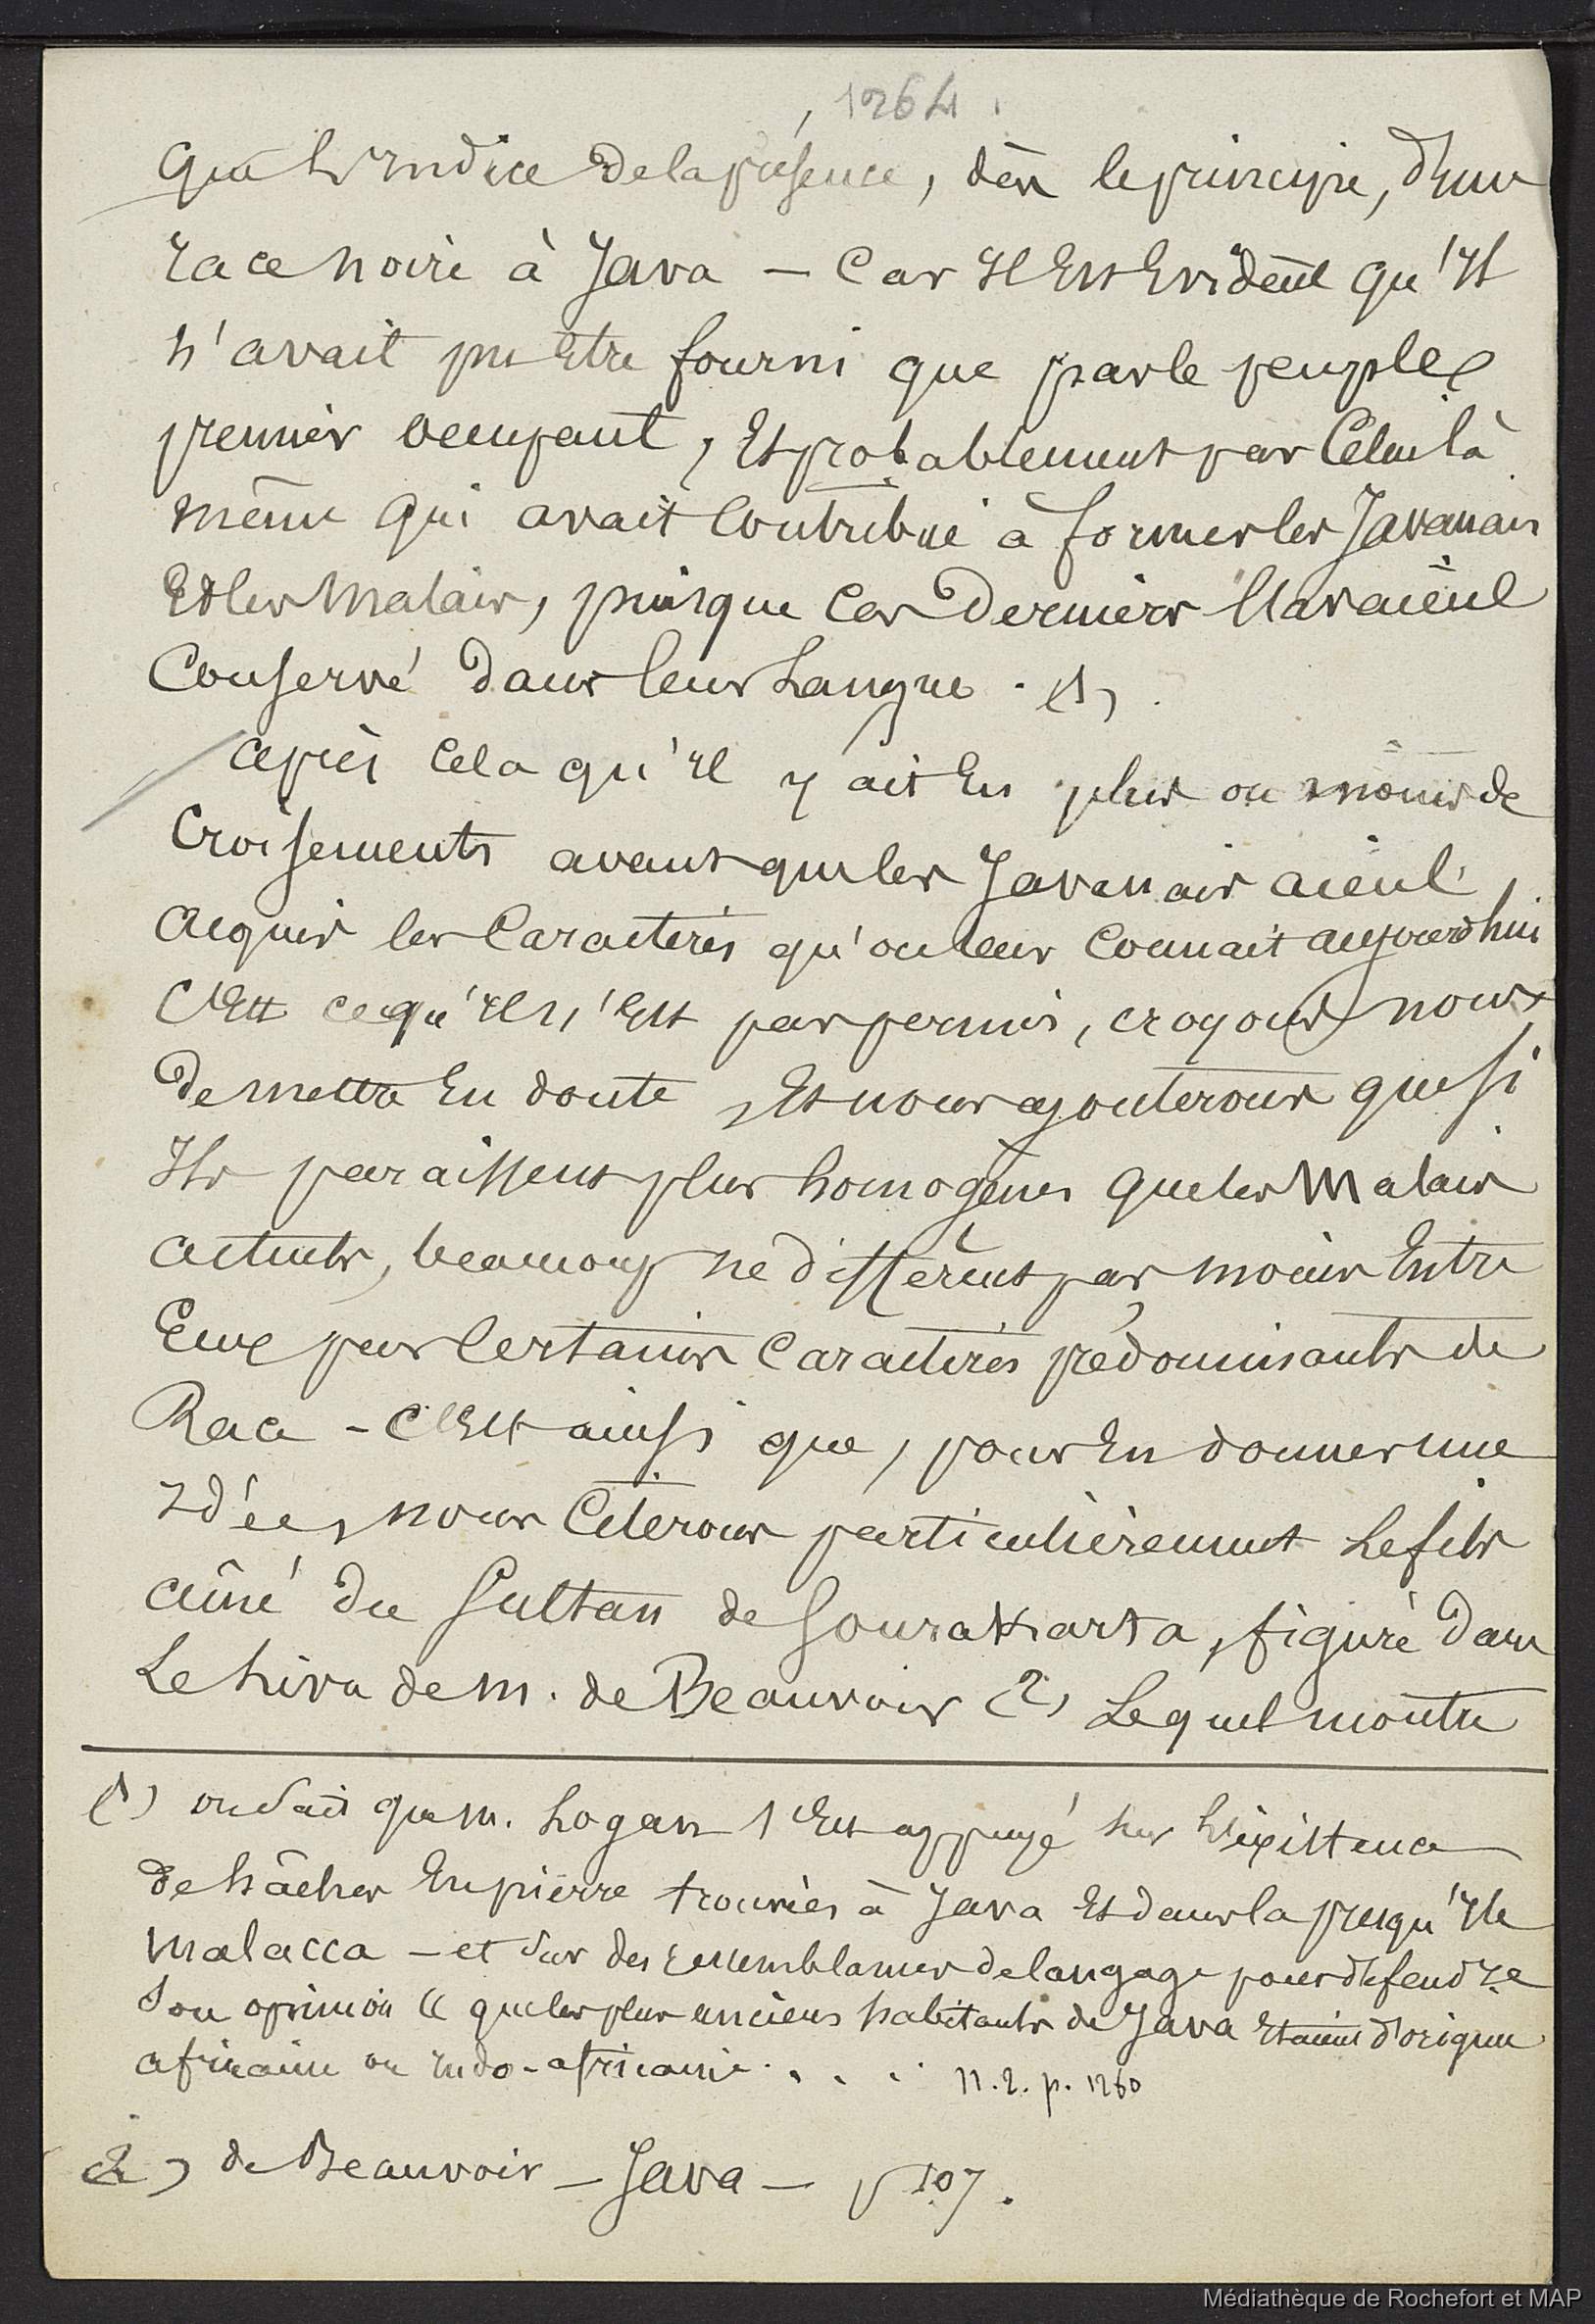 1264
que l'indice de la présence, dès le principe, d'une
race noire à Java — Car Il Est Evident qu'Il
n'avait pu Etre fourni que par le peuple
premier occupant, Et probablement par Celui là
même qui avait Contribué à former les Javanais
Et les Malais, puisque Ces Derniers l'avaient
Conservé dans leur Langue. (1)
après Cela qu'Il y ait Eu plus ou moins de
Croisements avant que les Javanais aient
acquis les Caractères qu'on leur Connait aujourd'hui
C'Est ce qu'Il n'Est pas permis, croyons nous
De mettre En doute, Et nous ajouterons que si
Ils paraissent plus homogènes que les Malais
actuels, beaucoup ne diffèrent pas moins Entre
Eux par Certains Caractères prédominants de
Race - C'Est ainsi que, pour En donner une
Idée, nous Citerons particulièrement Le fils
aîné du Sultan de Sourakarta, figuré dans
Le Livre de M. de Beauvoir (2) Lequel montre
(1) on Sait que M. Logan s'Est appuyé sur l'Existence
de hâches En pierre trouvées à Java Et dans la presqu'Ile
Malacca — et sur des ressemblances de langage pour défendre
Son opinion « que les plus anciens habitants de Java Etaient d'origine
africaine ou Indo-africaine . . . 11. 2. p. 1260
(2) de Beauvoir — Java — p 107.
Médiathèque de Rochefort et MAP